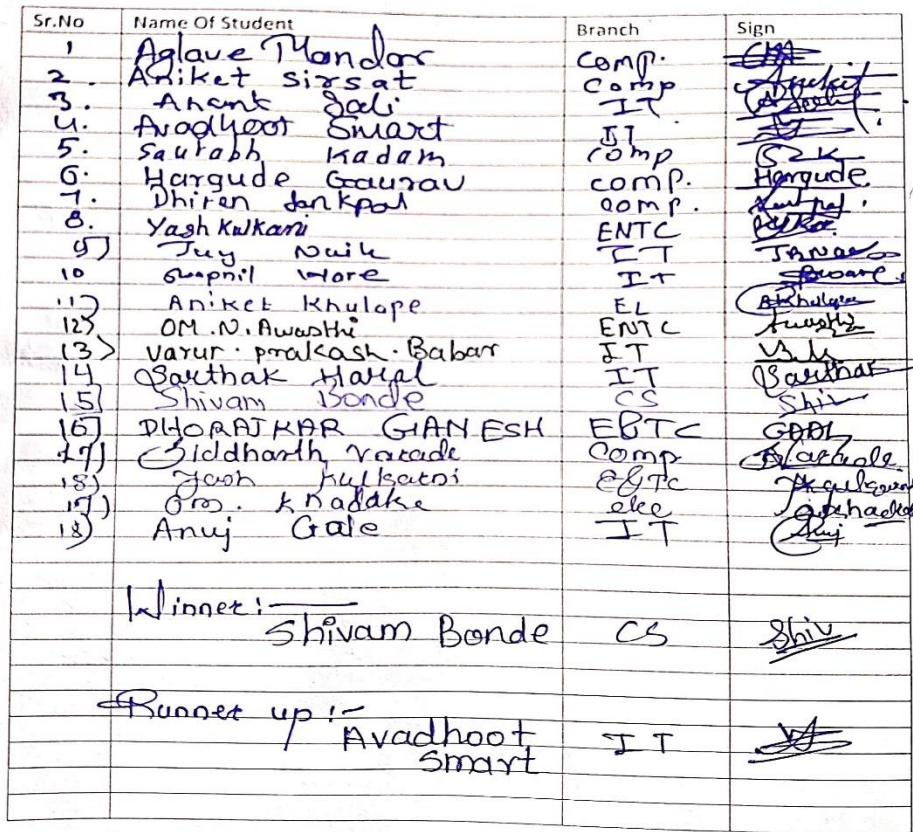 Sr.No Name Of Student Branch Sign
1 Aglave Mandar Comp.
2. Aniket Sirsat Comp
3. Anant Jali IT
4. Avadhoot Smart IT
5. Saurabh Kadam comp SZK
6. Hargude Gaurav comp. Hargude
7. Dhiren comp.
8. Yash Kulkani ENTC
9) Juy Naik IT
10 Swapnil Ware IT
11) Aniket Khulape EL
12) OM.N.Awasthi ENTC Awasthi
13) varur.prakash.Babar IT
14 Sarthak Haral IT Sarthak
15) Shivam Bonde CS Shiv
16) DHORAJKAR GANESH E&TC
17) Siddharth Varade Comp
18) Yash Kulkarni E&TC
17) Om. Khadake ele
18) Anuj Gale IT Anuj
Winner:-
Shivam Bonde CS Shiv
Runner up :-
Avadhoot IT
Smart